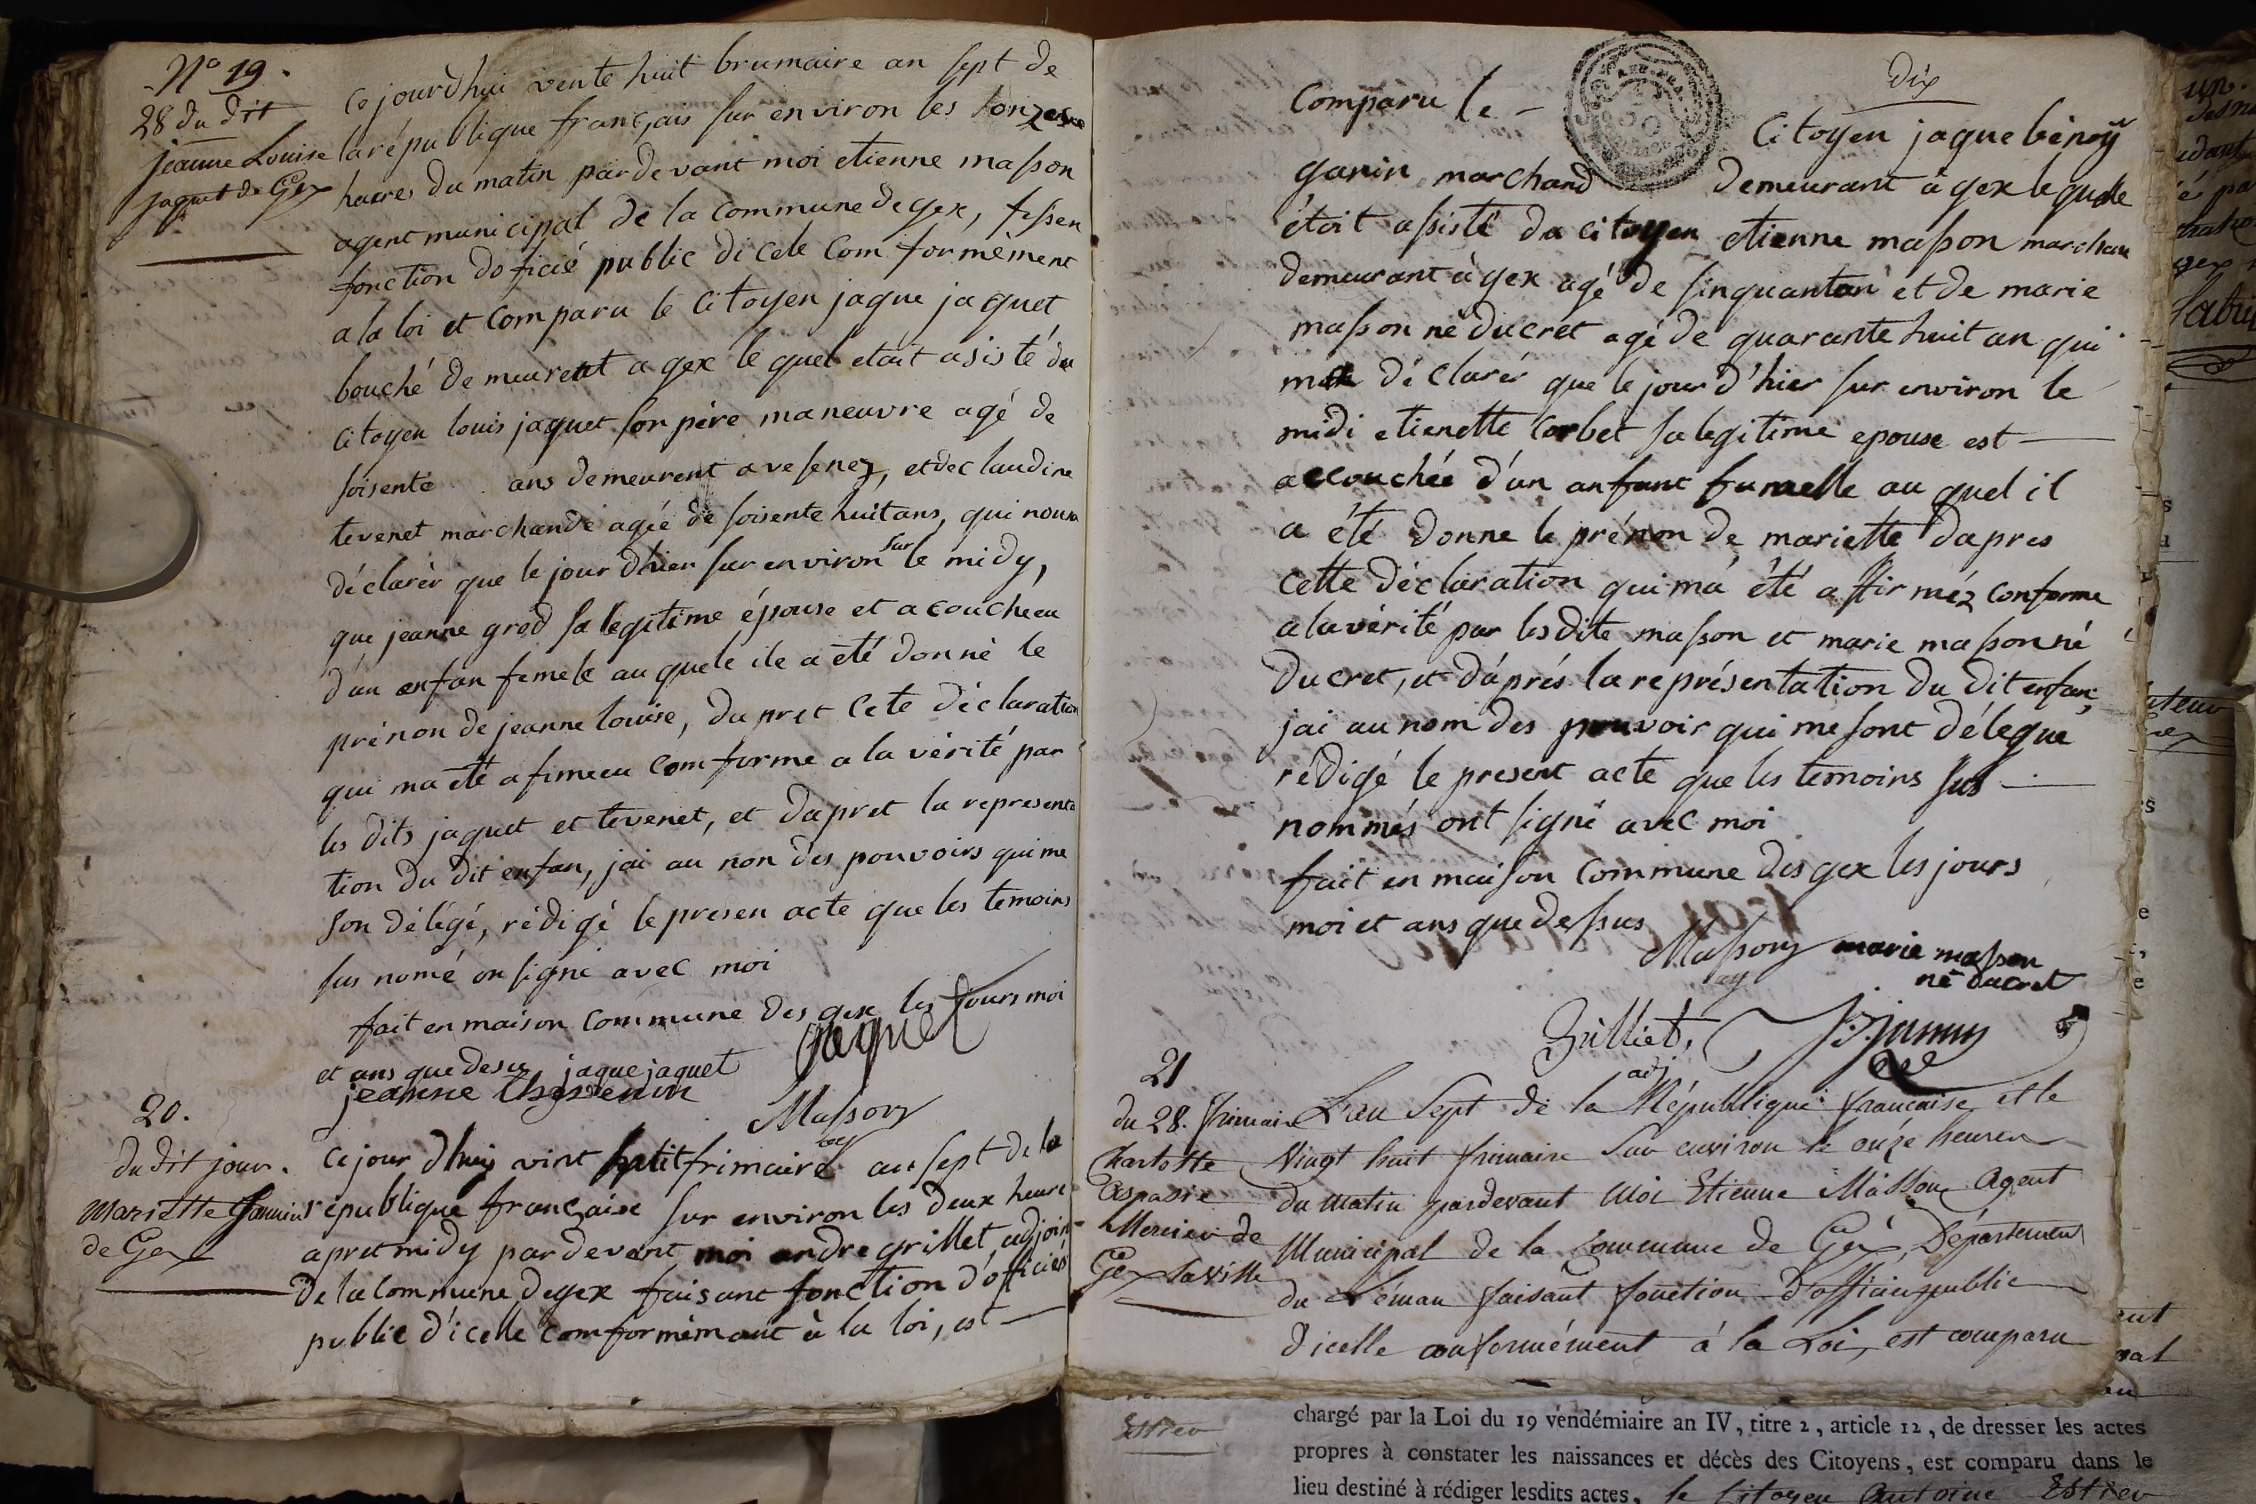 No 19.
28 du dit
jeanne Louise
jaquet de Gex
Ce jourdhui vente huit brumaire an sept de
la répu blique français sur environ les honzes
heures du matin par de vant moi etienne masson
agent municipal de la commune de gex, fesen
fonction doficié public di cele com formément
a la loi et compara le citoyen jaque jaquet
bouché de meurent a gex le quel etait asisté du
citoyen louis jaquet son père maneuvre agé de
soisente ans demeurent a vesenez, et de claudine
tevenet marchande agée de soisente huit ans, qui nous a
déclarèr que le jour dhier sur environ sur le midy,
que jeanne grod sa legitime épouse et acoucheea
d'un enfan femele au quele ile a été donné le
prénon de jeanne louise, dapret cete déclaration
qui ma été afimeea comforme a la vérité par
les dits jaquet et tevenet, et dapret la represent
tion du dit enfan, jai au non des pouvoirs qui me
son délégé, rédigé le presen acte que les temoins
sus nomé on signé avec moi
fait en maison commune des gex les jours moi
et ans que desus jaque jaquet jaquet
jeanne thevenin
Masson
ag
20.
du dit jour.
Mariette Gannin
de Gex
Ce jour dhuy vint huit frimaire an sept de la
republique française sur environ les deux heure
apret midy par devant moi andre grillet, adjoin
de la commune de gex faisant fonction d'officiés
public d'icelle comformémant à la loi, est
dix
Comparu le
Citoyen jaque bénoÿ
ganin marchand demeurant à gex le quele
étoit assisté du citoyen etienne masson marchand
demeurant à gex agé de sinquantan et de marie
masson né ducret agé de quarante huit an qui
ma déclarér que le jour d'hier sur environ le
midi etienette corbet sa legitime epouse est
accouchée d'un anfant fumelle au quel il
a été donne le prénon de mariette dapres
cette déclaration qui ma été affirméz conforme
a la vérité par les dite masson et marie masson né
ducret, et d'aprés la représentation du dit enfan;
jai au nom des pouvoir qui me sont délegué
rédigé le present acte que les temoins sus
nommés ont signé avec moi
fait en maison commune des gex les jours
moi et ans que dessus
Masson marie masson
ag né ducret
Grilliet, J: B: jannin
adj
21
du 28. frimaire
Charlotte
Aspasie
Mercier de
Gex la ville
L'an Sept de la République française et le
Vingt huit frimaire Sur environ le onze heures
du matin pardevant moi Etienne Masson Agent
Municipal de la Commune de Gex, Département
du Léman faisant fonction d'officier public
d'icelle conformément à la Loi, est comparu
Estrer
chargé par la Loi du 19 vendémiaire an IV, titre 2, article 12, de dresser les actes
propres à constater les naissances et décès des Citoyens, est comparu dans le
lieu destiné à rédiger lesdits actes, le Citoyen Antoine Estrer